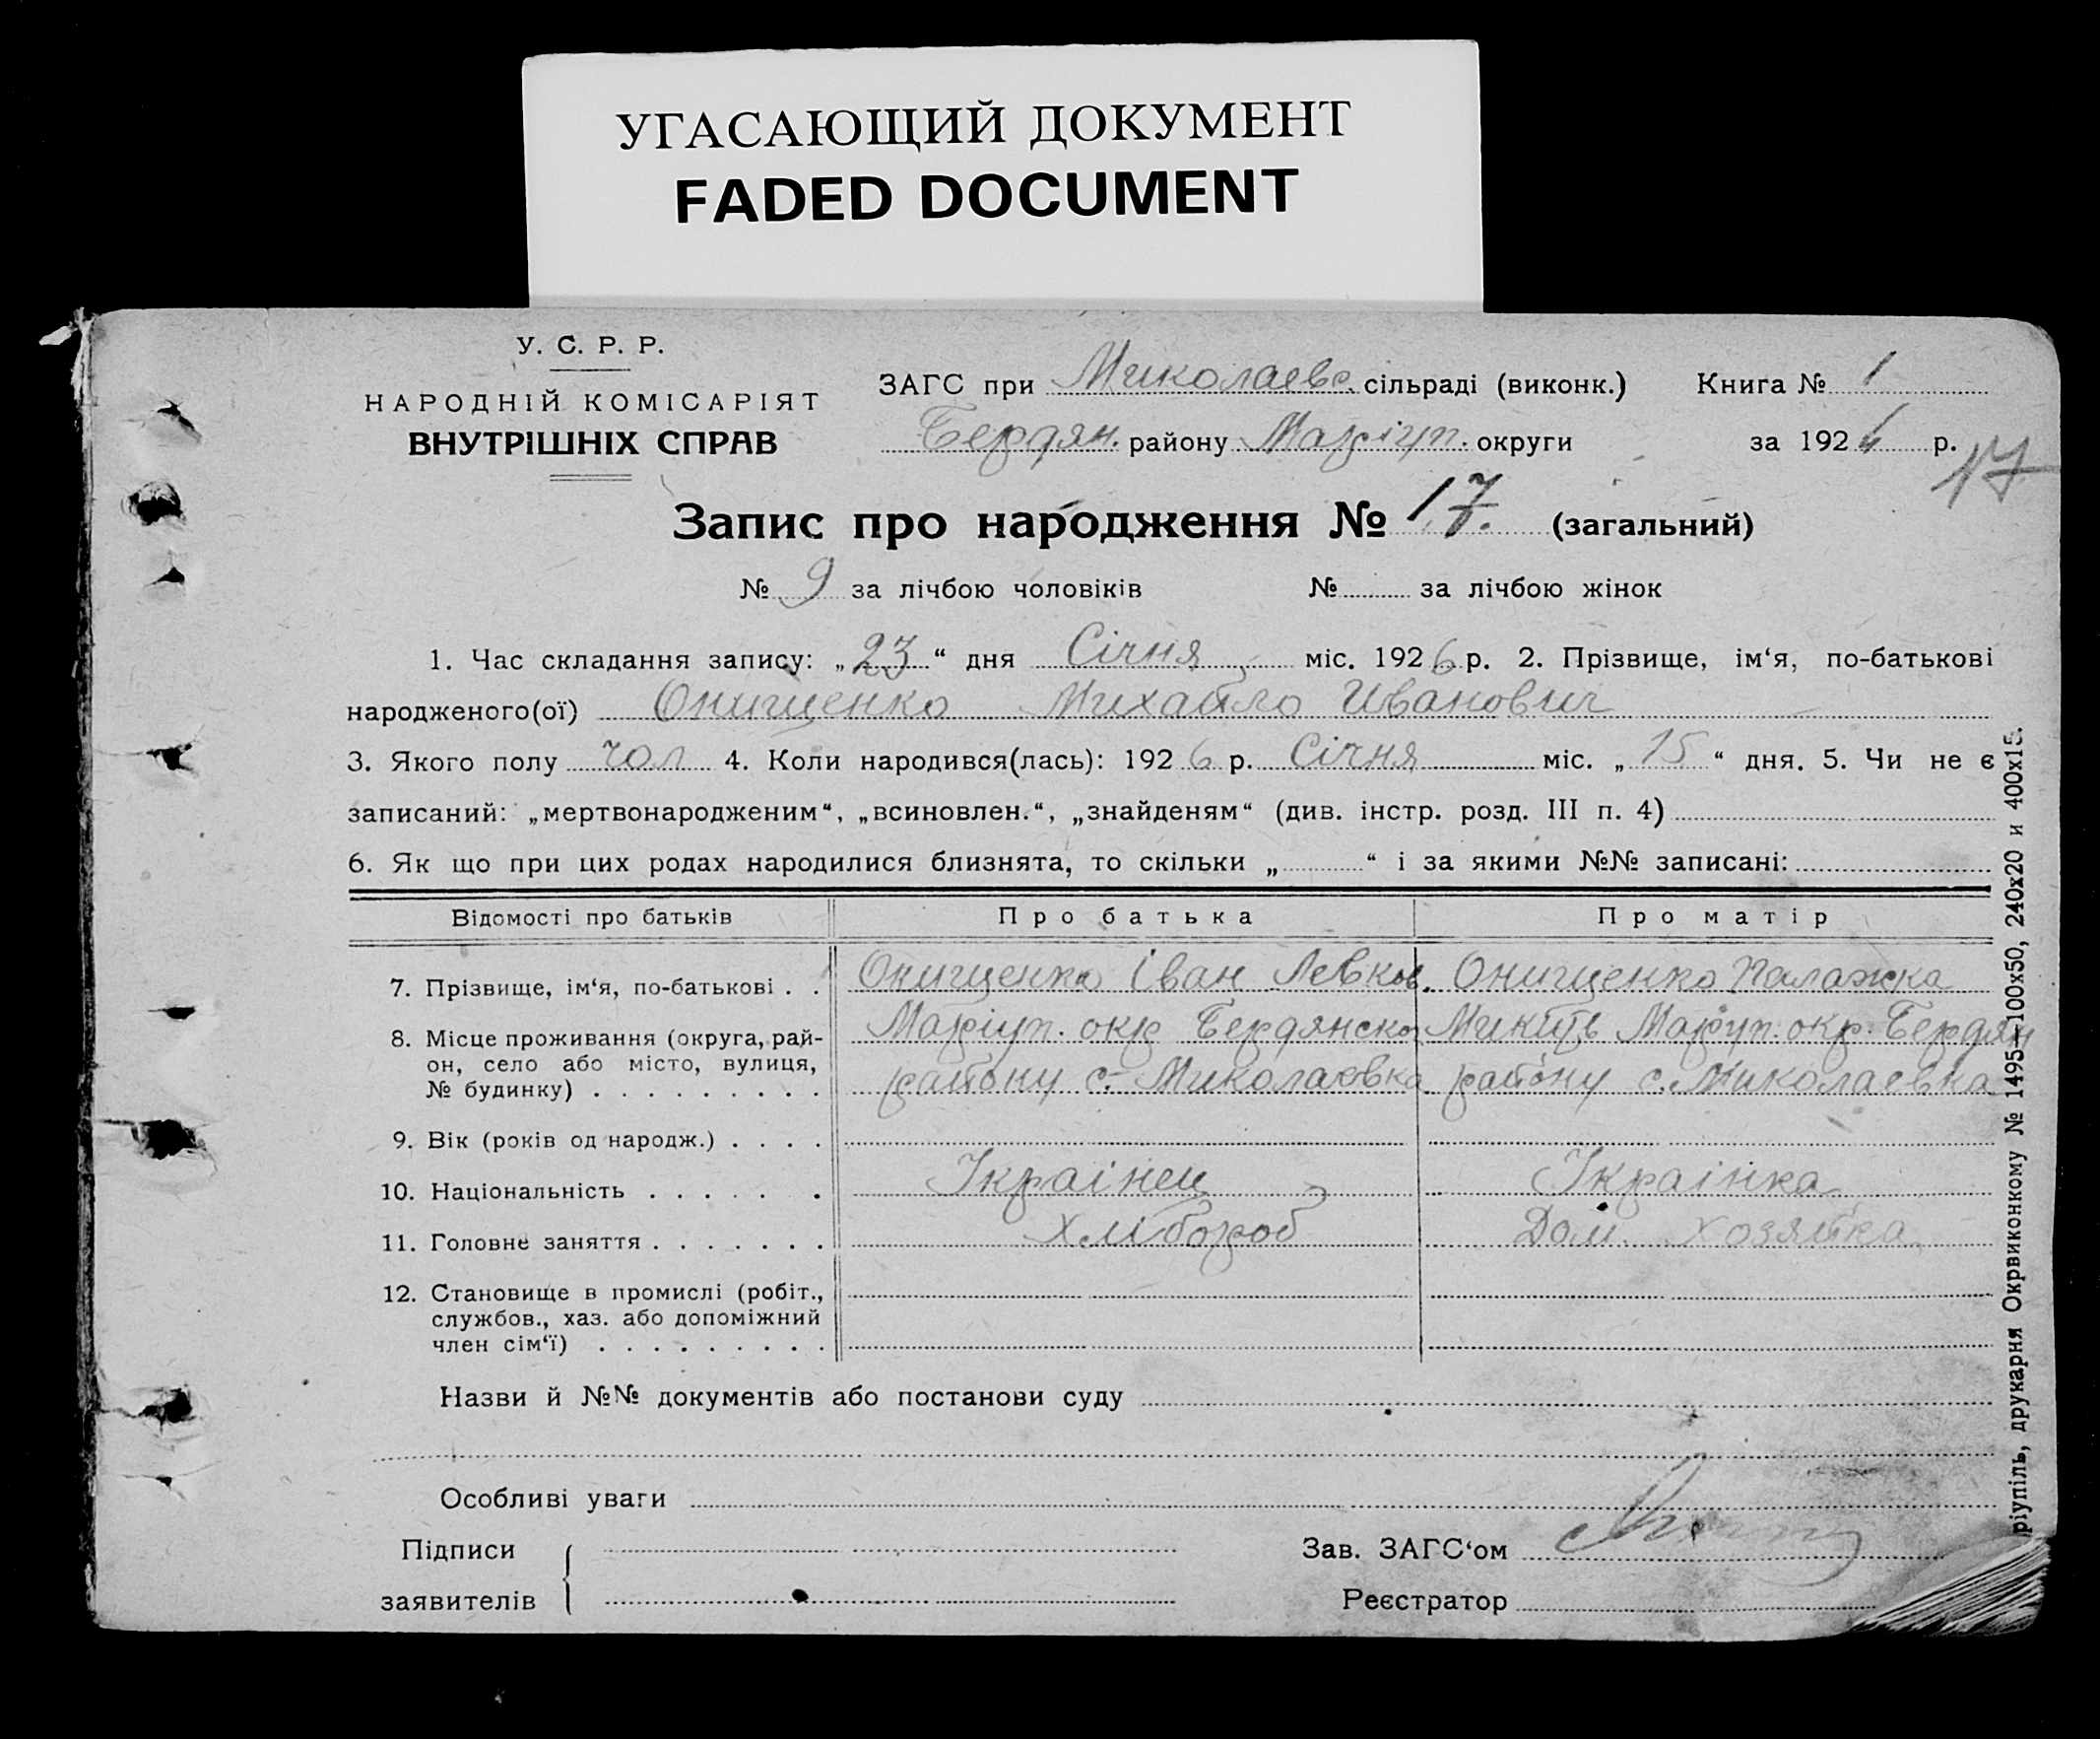 УГАСАЮЩИЙ ДОКУМЕНТ
FADED DOCUMENT
У. С. Р. Р.
НАРОДНІЙ КОМІСАРІЯТ
ВНУТРІШНІХ СПРАВ
ЗАГС при Миколаевс. сільраді (виконк.) Книга № 1
Бердян. району Маріуп. округи за 1926 р.
17
Запис про народження № 17. (загальний)
№ 9 за лічбою чоловіків № за лічбою жінок
1. Час складання запису: „23“ дня Січня міс. 1926 р. 2. Прізвище, ім‘я, по-батькові
народженого(ої) Онищенко Михайло Иванович
3. Якого полу чол 4. Коли народився(лась): 1926 р. Січня міс. „15“ дня. 5. Чи не є
записаний: „мертвонародженим“, „всиновлен.“, „знайденям“ (див. інстр. розд. III п. 4)
6. Як що при цих родах народилися близнята, то скільки „ “ і за якими №№ записані:
Відомості про батьків Про батька Про матір
7. Прізвище, ім‘я, по-батькові . . Онищенко Іван Левков. Онищенко Палажка
8. Місце проживання (округа, рай- Маріуп. окр Бердянско Микит. Маріуп. окр. Бердян
он, село або місто, вулиця, району с. Миколаєвка району с. Миколаевка
№ будинку) . . . . . . . . .
9. Вік (років од народж.) . . . .
10. Національність . . . . . . Українец Українка
11. Головне заняття . . . . . . . Хлібороб Дом. хозяйка
12. Становище в промислі (робіт.,
службов., хаз. або допоміжний
член сім‘ї) . . . . . . . . .
Назви й №№ документів або постанови суду
Особливі уваги
Підписи
заявителів
Зав. ЗАГС‘ом
Реєстратор
ріупіль, друкарня Окрвиконкому № 1495—100х50, 240х20 и 400х15.